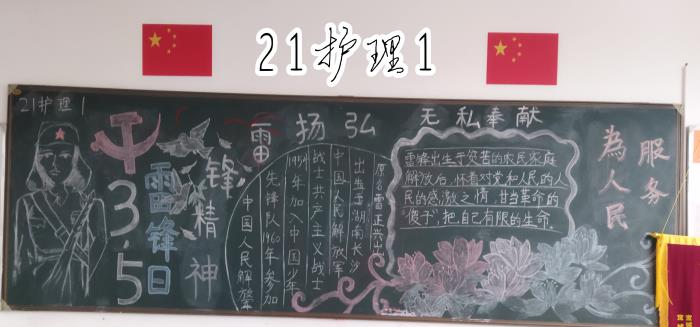 21护理1
21护理1
3.5
雷锋日
扬弘
雷
锋精神
原名雷正兴
出生于湖南长沙
中国人民解放军
战士共产主义战士
1954年加入中国少年
先锋队1960年参加
中国人民解放军
无私奉献
雷锋出生于贫苦的农民家庭
解放后,怀着对党和人民的人
民的感激之情,甘当革命的
"傻子",把自己有限的生命.
為人民
服务